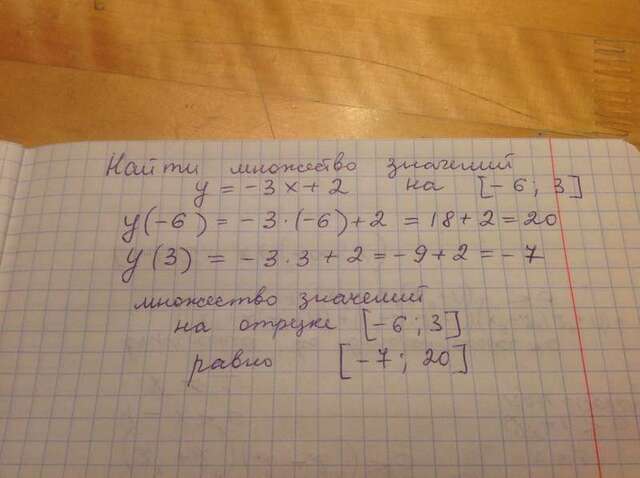 Найти множество значений
y = -3x + 2 на [-6; 3]
y(-6) = -3·(-6)+2 = 18+2 = 20
y(3) = -3·3+2 = -9+2 = -7
множество значений
на отрезке [-6; 3]
равно [-7; 20]